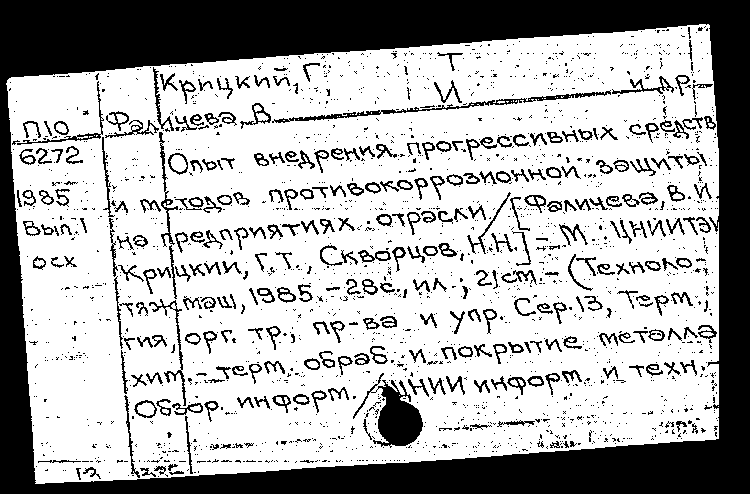 Крицкий, Г. Т
Фаличева, В. И и др.
П10
6272
1985
Вып.1
осх
Опыт внедрения прогрессивных средств
и методов противокоррозионной защиты
на предприятиях отрасли / [Фаличева, В.И
Крицкий, Г.Т., Скворцов, Н.Н.] - М.: ЦНИИТЭИ
тяжмаш, 1985. - 28с., ил.; 21см. - (Техноло-
гия, орг. тр., пр-ва и упр. Сер.13, Терм.,
хим. - терм. обраб. и покрытие металла
Обзор. информ. ЦНИИ информ. и техн. -